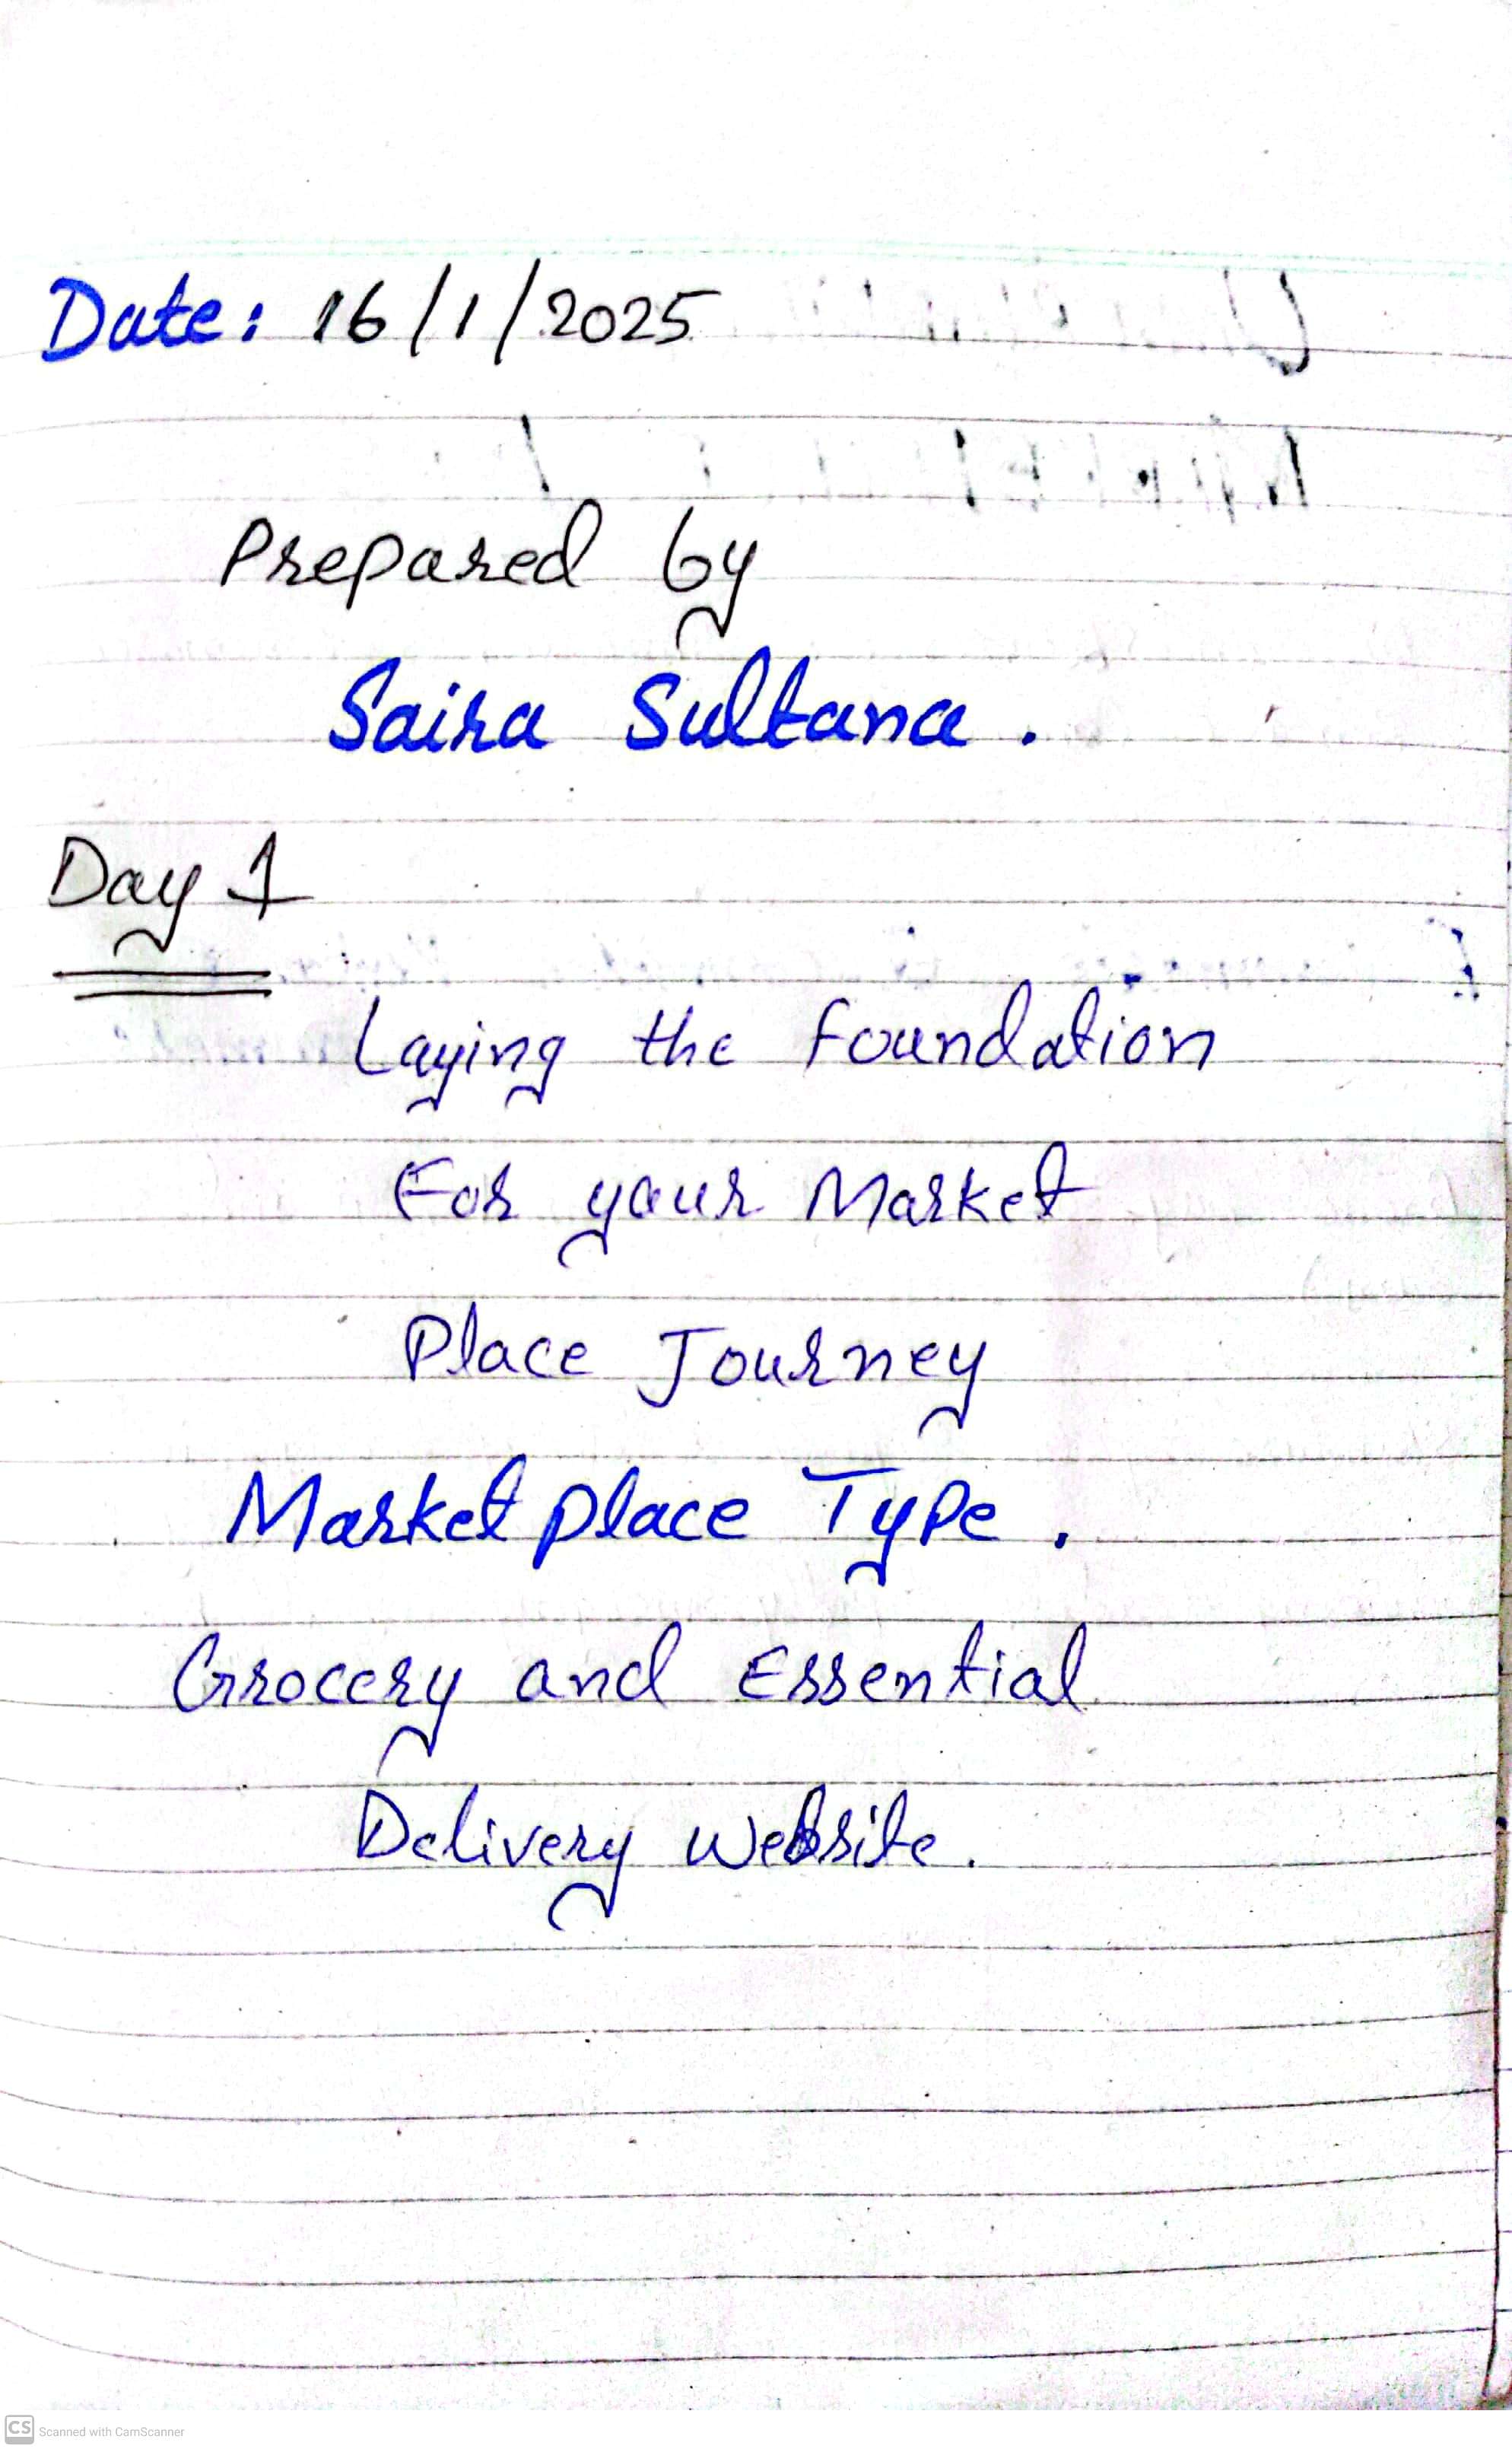 Date: 16/1/2025
Prepared by
Saira Sultana.
Day 1
Laying the Foundation
For your Market
Place Journey
Market place Type.
Grocery and Essential
Delivery Website.
CS Scanned with CamScanner